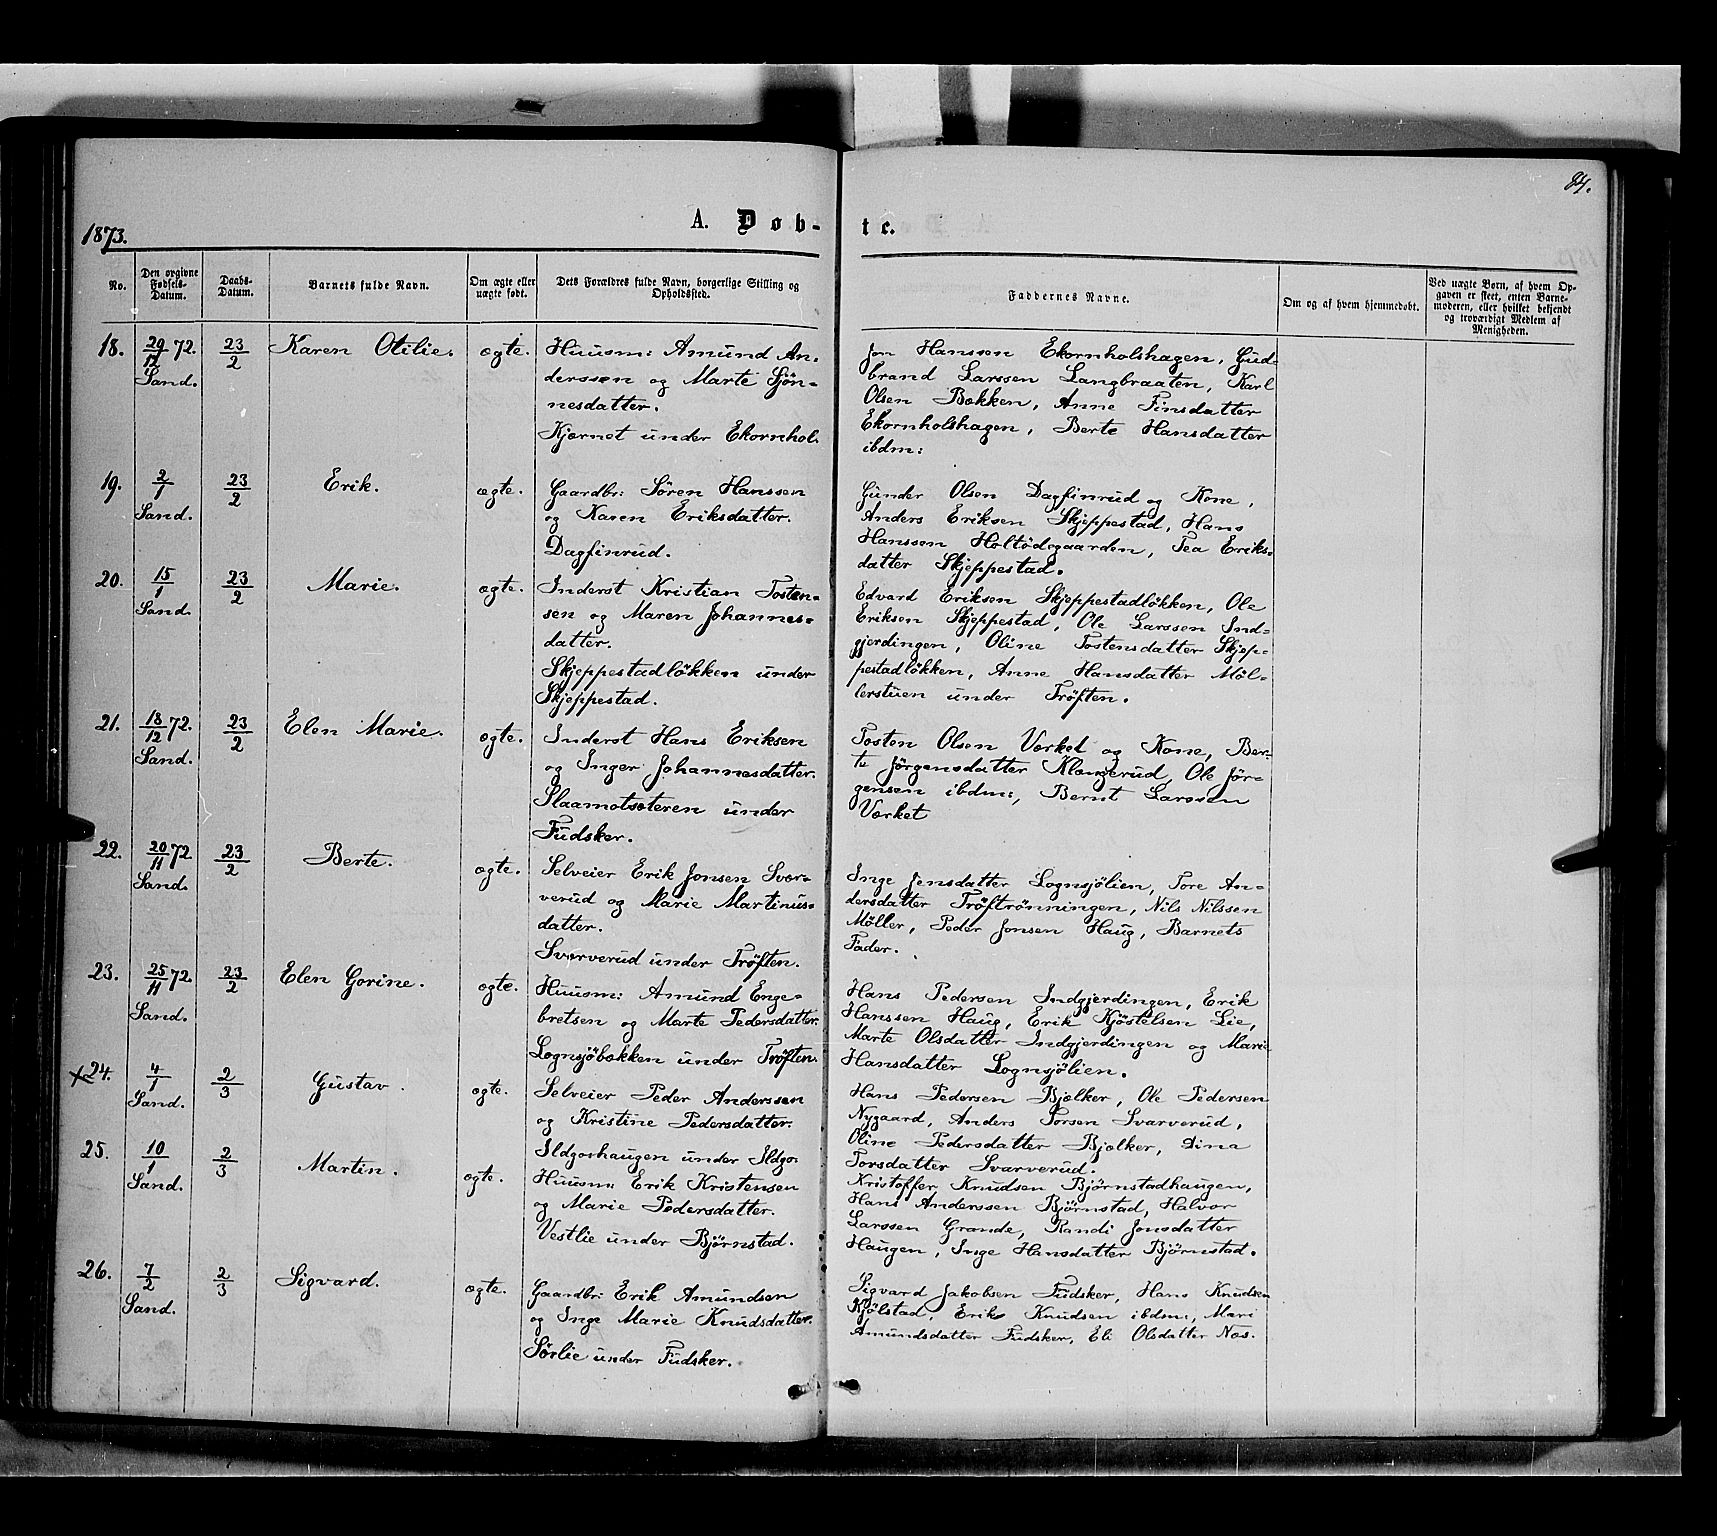 84.
1873.
A. Døb-
te.
No.
Den opgivne Fødsels-Datum.
Daabs-Datum.
Barnets fulde Navn.
Om ægte eller uægte født.
Dets Forældres fulde Navn, borgerlige Stilling og Opholdssted.
Faddernes Navne.
Om og af hvem hjemmedøbt.
Ved uægte Børn, af hvem Op-
gaven er skeet, enten Barne-
moderen, eller hvilket bekjendt
og troværdigt Medlem af
Menigheden.
18. 29/12 72. Sand. 23/2 Karen Otilie. ægte.
Huusm: Amund An-
derssen og Marte Sjøn-
nesdatter.
Kjærnet under Ekornhol.
Jon Hanssen Ekornholshagen, Gud-
brand Larssen Langbraaten, Karl
Olsen Bækken, Anne Finsdatter
Ekornholshagen, Berte Hansdatter
ibdm:
19. 2/1 Sand. 23/2 Erik. ægte.
Gaardbr: Søren Hanssen
og Karen Eriksdatter.
Dagfinrud.
Gunder Olsen Dagfinrud og Kone,
Anders Eriksen Skjeppestad, Hans
Hanssen Holtödegaarden, Tea Eriks-
datter Skjeppestad.
20. 15/1 Sand. 23/2 Marie. ægte.
Inderst Kristian Tosten-
sen og Maren Johannes-
datter.
Skjeppestadløkken under
Skjeppestad.
Edvard Eriksen Skjeppestadløkken, Ole
Eriksen Skjeppestad, Ole Larssen Ind-
gjerdingen, Oline Tostensdatter Skjep-
pestadløkken, Anne Hansdatter Møl-
lerstuen under Trøften.
21. 18/12 72. Sand. 23/2 Elen Marie. ægte.
Inderst Hans Eriksen
og Inger Johannesdatter.
Slaamotsæteren under
Fudsker.
Tosten Olsen Værket og Kone, Ber-
te Jørgensdatter Klangerud, Ole Jør-
gensen ibdm:, Bernt Larssen
Værket
22. 20/11 72 Sand. 23/2 Berte. ægte.
Selveier Erik Jonsen Svar-
verud og Marie Martinus-
datter.
Svarverud under Trøften.
Inge Jensdatter Lognsjølien, Tore An-
dersdatter Trøftrønningen, Nils Nilssen
Møller, Peder Jonsen Haug, Barnets
Fader.
23. 25/11 72. Sand. 23/2 Elen Gorine. ægte.
Huusm: Amund Enge-
bretsen og Marte Pedersdatter.
Lognsjøbækken under Trøften.
Hans Pedersen Indgjerdingen, Erik
Hanssen Haug, Erik Kjøstelsen Lie,
Marte Olsdatter Indgjerdingen og Marie
Hansdatter Lognsjølien.
x24. 4/1 Sand. 2/3 Gustav. ægte.
Selveier Peder Anderssen
og Kristine Pedersdatter.
Ildgoshaugen under Ildgos
Hans Pedersen Bjælker, Ole Pedersen
Nygaard, Anders Torsen Svarverud,
Oline Pedersdatter Bjælker, Dina
Torsdatter Svarverud.
25. 10/1 Sand. 2/3 Martin. ægte.
Huusm: Erik Kristensen
og Marie Pedersdatter.
Vestlie under Bjørnstad.
Kristoffer Knudsen Bjørnstadhaugen,
Hans Anderssen Bjørnstad, Halvor
Larssen Grande, Randi Jonsdatter
Haugen, Inge Hansdatter Bjørnstad.
26. 7/2 Sand. 2/3 Sigvard. ægte.
Gaardbr: Erik Amundsen
og Inge Marie Knudsdatter.
Sørlie under Fudsker.
Sigvard Jakobsen Fudsker, Hans Knudsen
Kjølstad, Erik Knudsen ibdm:, Mari
Amundsdatter Fudsker, Eli Olsdatter Næs.